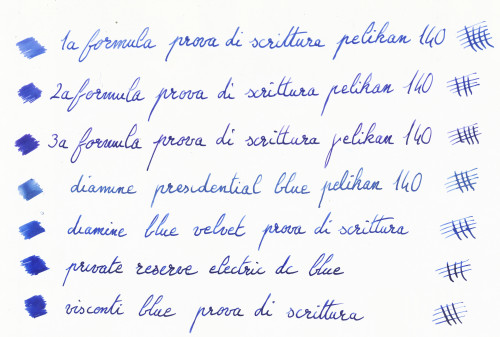 1a formula prova di scrittura pelikan 140
2a formula prova di scrittura pelikan 140
3a formula prova di scrittura pelikan 140
diamine presidential blue pelikan 140
diamine blue velvet prova di scrittura
private reserve electric dc blue
visconti blue prova di scrittura